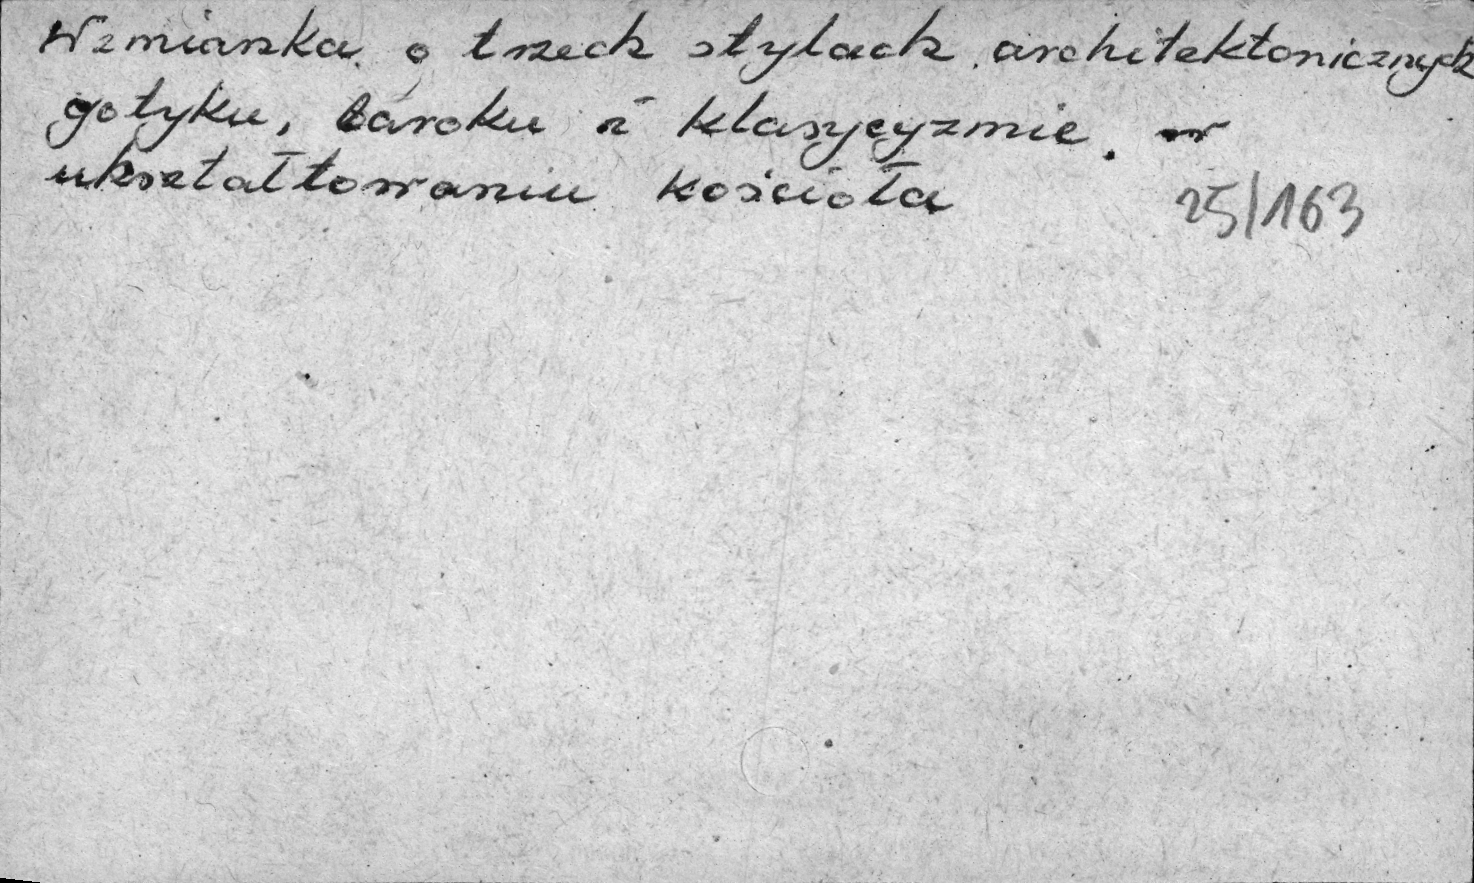 Wzmianka o trzech stylach architektonicznych
gotyku, baroku i klasycyzmie. w
ukształtowaniu kościoła
25/163